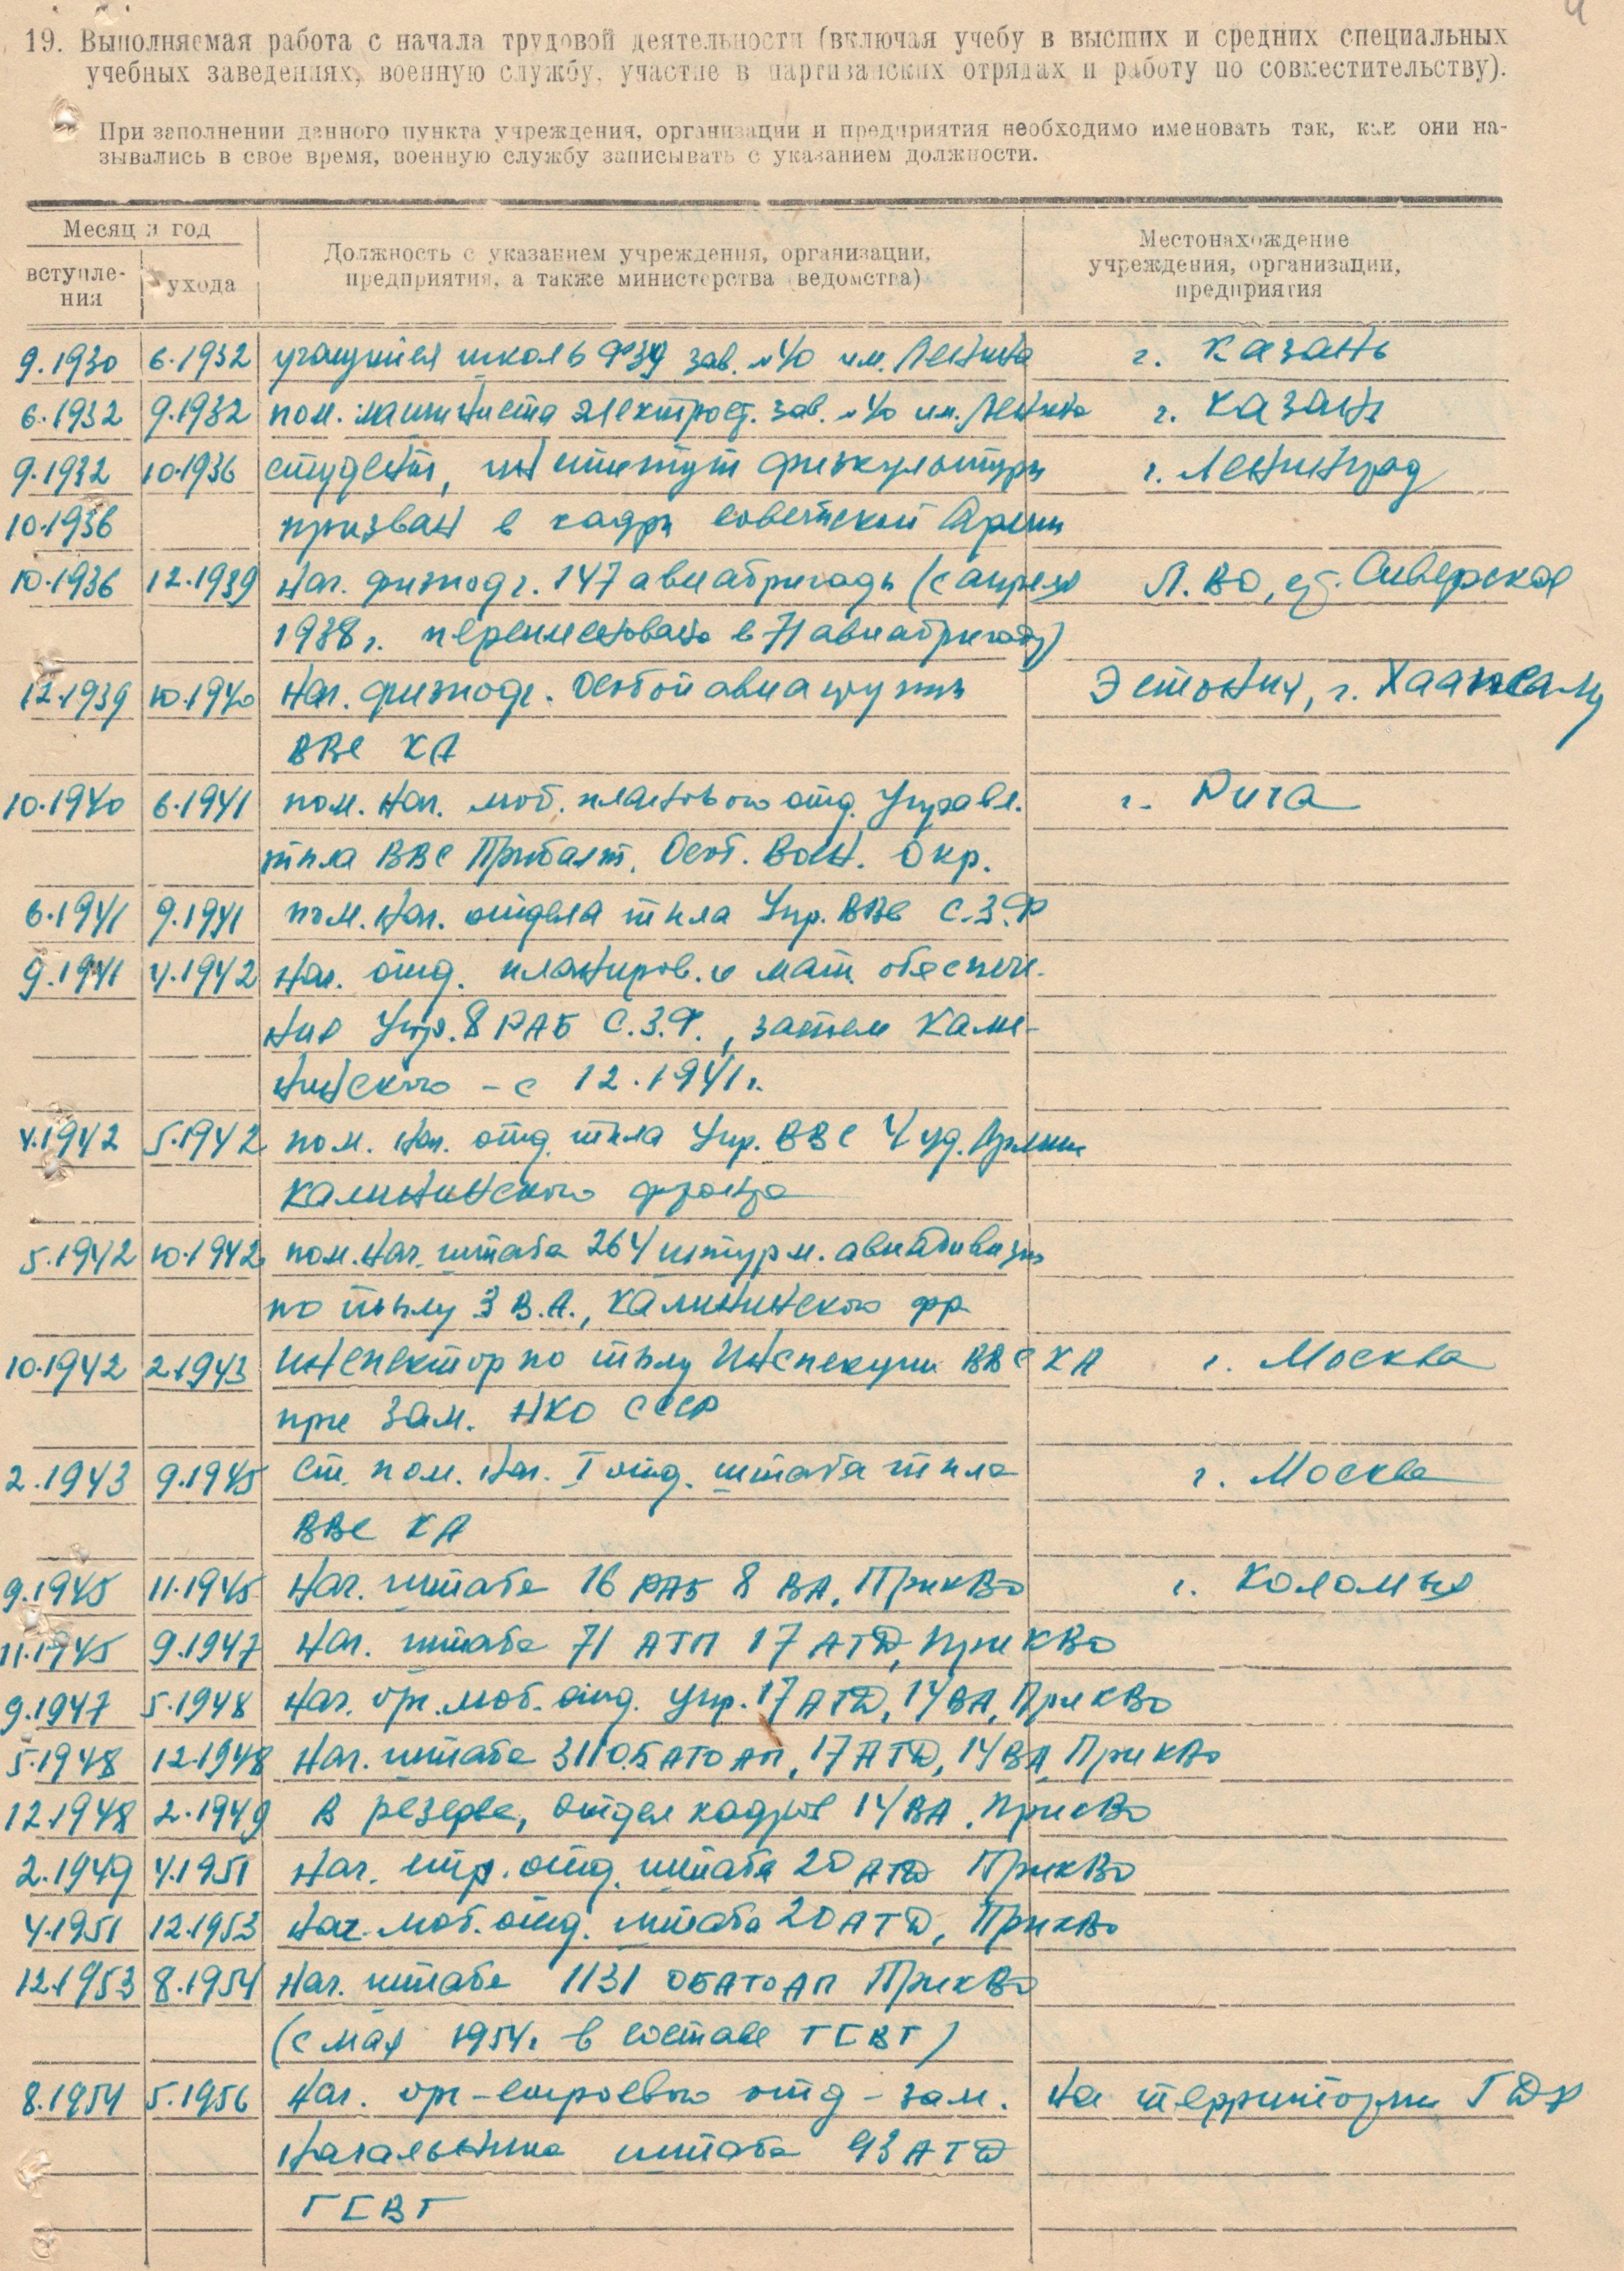 19. Выполняемая работа с начала трудовой деятельности (включая учебу в высших и средних специальных
учебных заведениях, военную службу, участие в партизанских отрядах и работу по совместительству).
При заполнении данного пункта учреждения, организации и предприятия необходимо именовать так, как они на-
зывались в свое время, военную службу записывать с указанием должности.
Месяц и год
вступле-
ния
ухода
Должность с указанием учреждения, организации,
предприятия, а также министерства (ведомства)
Местонахождение
учреждения, организации,
предприятия
9.1930 6.1932 учащийся школы ФЗУ зав. №40 им. Ленина г. Казань
6.1932 9.1932 пом. машиниста электрост. зав. №40 им. Ленина г. Казань
9.1932 10.1936 студент, институт физкультуры г. Ленинград
10.1936 призван в кадры Советской Армии
10.1936 12.1939 нач. физподг. 147 авиабригады (с апреля Л.ВО, ст. Сиверская
1938 г. переименована в 71 авиабригаду)
12.1939 10.1940 нач. физподг. Особой авиагруппы Эстония, г. Хаапсалу
ВВС КА
10.1940 6.1941 пом. нач. моб. планового отд. Управл. г. Рига
тыла ВВС Прибалт. Особ. Воен. Окр.
6.1941 9.1941 пом. нач. отдела тыла Упр. ВВС С.З.Ф
9.1941 4.1942 нач. отд. планиров. и мат. обеспече-
ния Упр. 8 РАБ С.З.Ф., затем Кали-
нинского - с 12.1941 г.
4.1942 5.1942 пом. нач. отд. тыла Упр. ВВС 4 уд. Армии
Калининского фронта
5.1942 10.1942 пом. нач. штаба 264 штурм. авиадивизии
по тылу 3 В.А., Калининского фр
10.1942 2.1943 инспектор по тылу Инспекции ВВС КА г. Москва
при зам. НКО СССР
2.1943 9.1945 ст. пом. нач. I отд. штаба тыла г. Москва
ВВС КА
9.1945 11.1945 нач. штаба 16 РАБ 8 ВА, ПрикВо г. Коломыя
11.1945 9.1947 нач. штаба 71 АТП 17 АТД, ПрикВо
9.1947 5.1948 нач. орг. моб. отд. упр. 17 АТД, 14 ВА, ПрикВо
5.1948 12.1948 нач. штаба 311 ОБАТО АП, 17 АТД, 14 ВА, ПрикВо
12.1948 2.1949 в резерве, отдел кадров 14 ВА, ПрикВо
2.1949 4.1951 нач. стр. отд. штаба 20 АТД ПрикВо
4.1951 12.1953 нач. моб. отд. штаба 20 АТД, ПрикВо
12.1953 8.1954 нач. штаба 1131 ОБАТО АП ПрикВо
(с мая 1954 г. в составе ГСВГ)
8.1954 5.1956 нач. орг-строевого отд - зам. на территории ГДР
начальника штаба 93 АТД
ГСВГ